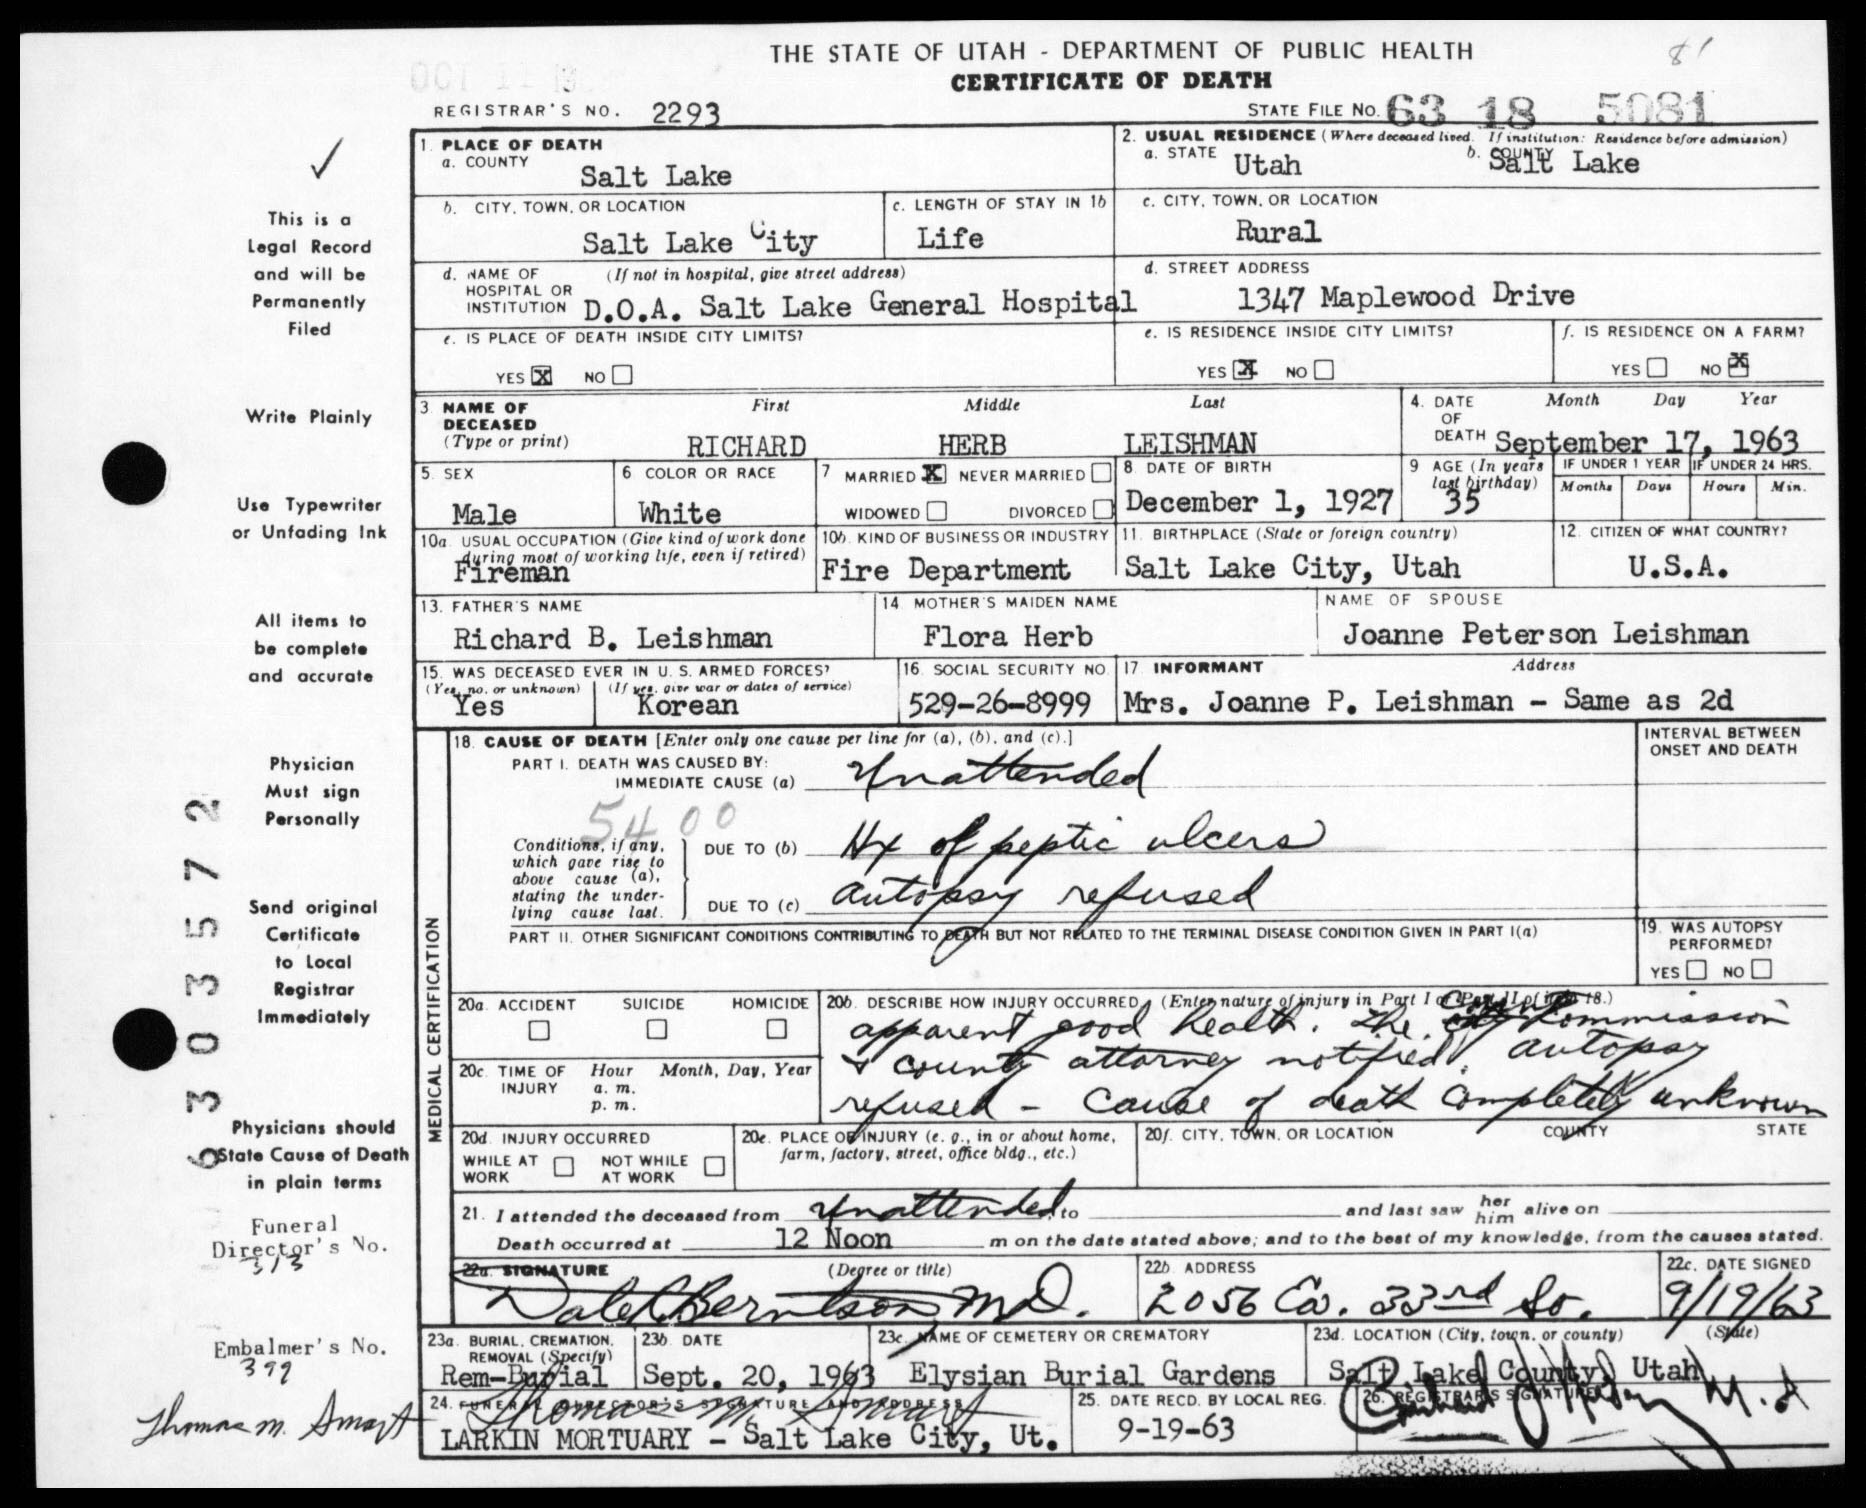 THE STATE OF UTAH - DEPARTMENT OF PUBLIC HEALTH
8'
OCT 11 19
CERTIFICATE OF DEATH
REGISTRAR'S NO. 2293
STATE FILE NO. 63 18 5081
1. PLACE OF DEATH
a. COUNTY
Salt Lake
2. USUAL RESIDENCE (Where deceased lived. If institution: Residence before admission)
a. STATE Utah b. COUNTY Salt Lake
b. CITY, TOWN, OR LOCATION
Salt Lake City
c. LENGTH OF STAY IN 1b
Life
c. CITY, TOWN, OR LOCATION
Rural
d. NAME OF HOSPITAL OR INSTITUTION (If not in hospital, give street address)
D.O.A. Salt Lake General Hospital
d. STREET ADDRESS
1347 Maplewood Drive
e. IS PLACE OF DEATH INSIDE CITY LIMITS?
YES X NO
e. IS RESIDENCE INSIDE CITY LIMITS?
YES X NO
f. IS RESIDENCE ON A FARM?
YES NO X
3. NAME OF DECEASED (Type or print)
First Middle Last
RICHARD HERB LEISHMAN
4. DATE OF DEATH Month Day Year
September 17, 1963
5. SEX
Male
6 COLOR OR RACE
White
7 MARRIED X NEVER MARRIED
WIDOWED DIVORCED
8. DATE OF BIRTH
December 1, 1927
9 AGE (In years last birthday)
35
IF UNDER 1 YEAR
Months Days
IF UNDER 24 HRS.
Hours Min.
10a. USUAL OCCUPATION (Give kind of work done during most of working life, even if retired)
Fireman
10b. KIND OF BUSINESS OR INDUSTRY
Fire Department
11. BIRTHPLACE (State or foreign country)
Salt Lake City, Utah
12. CITIZEN OF WHAT COUNTRY?
U.S.A.
13. FATHER'S NAME
Richard B. Leishman
14 MOTHER'S MAIDEN NAME
Flora Herb
NAME OF SPOUSE
Joanne Peterson Leishman
15. WAS DECEASED EVER IN U. S. ARMED FORCES?
(Yes, no, or unknown) (If yes, give war or dates of service)
Yes Korean
16. SOCIAL SECURITY NO.
529-26-8999
17. INFORMANT Address
Mrs. Joanne P. Leishman - Same as 2d
MEDICAL CERTIFICATION
18. CAUSE OF DEATH [Enter only one cause per line for (a), (b), and (c).]
INTERVAL BETWEEN ONSET AND DEATH
PART I. DEATH WAS CAUSED BY:
IMMEDIATE CAUSE (a) Unattended
5400
Conditions, if any, which gave rise to above cause (a), stating the underlying cause last.
DUE TO (b) Hx of peptic ulcers
DUE TO (c) autopsy refused
PART II. OTHER SIGNIFICANT CONDITIONS CONTRIBUTING TO DEATH BUT NOT RELATED TO THE TERMINAL DISEASE CONDITION GIVEN IN PART I(a)
19. WAS AUTOPSY PERFORMED?
YES NO
20a. ACCIDENT SUICIDE HOMICIDE
20b. DESCRIBE HOW INJURY OCCURRED. (Enter nature of injury in Part I or Part II of item 18.)
apparent good health. The County Commission
& county attorney notified. autopsy
refused - cause of death completely unknown
20c. TIME OF INJURY Hour a. m. p. m. Month, Day, Year
20d. INJURY OCCURRED
WHILE AT WORK NOT WHILE AT WORK
20e. PLACE OF INJURY (e. g., in or about home, farm, factory, street, office bldg., etc.)
20f. CITY, TOWN, OR LOCATION COUNTY STATE
21. I attended the deceased from Unattended to and last saw her him alive on
Death occurred at 12 Noon m on the date stated above; and to the best of my knowledge, from the causes stated.
22a. SIGNATURE (Degree or title)
Dale C. Berntson, M.D.
22b. ADDRESS
2056 Ea. 33rd So.
22c. DATE SIGNED
9/19/63
23a. BURIAL, CREMATION, REMOVAL (Specify)
Rem-Burial
23b. DATE
Sept. 20, 1963
23c. NAME OF CEMETERY OR CREMATORY
Elysian Burial Gardens
23d. LOCATION (City, town, or county) (State)
Salt Lake County, Utah
24. FUNERAL DIRECTOR'S SIGNATURE AND ADDRESS
Thomas M. Smart
LARKIN MORTUARY - Salt Lake City, Ut.
25. DATE RECD. BY LOCAL REG.
9-19-63
26. REGISTRAR'S SIGNATURE
M. D
This is a
Legal Record
and will be
Permanently
Filed
Write Plainly
Use Typewriter
or Unfading Ink
All items to
be complete
and accurate
Physician
Must sign
Personally
Send original
Certificate
to Local
Registrar
Immediately
Physicians should
State Cause of Death
in plain terms
Funeral
Director's No.
313
Embalmer's No.
399
Thomas M. Smart
6303572